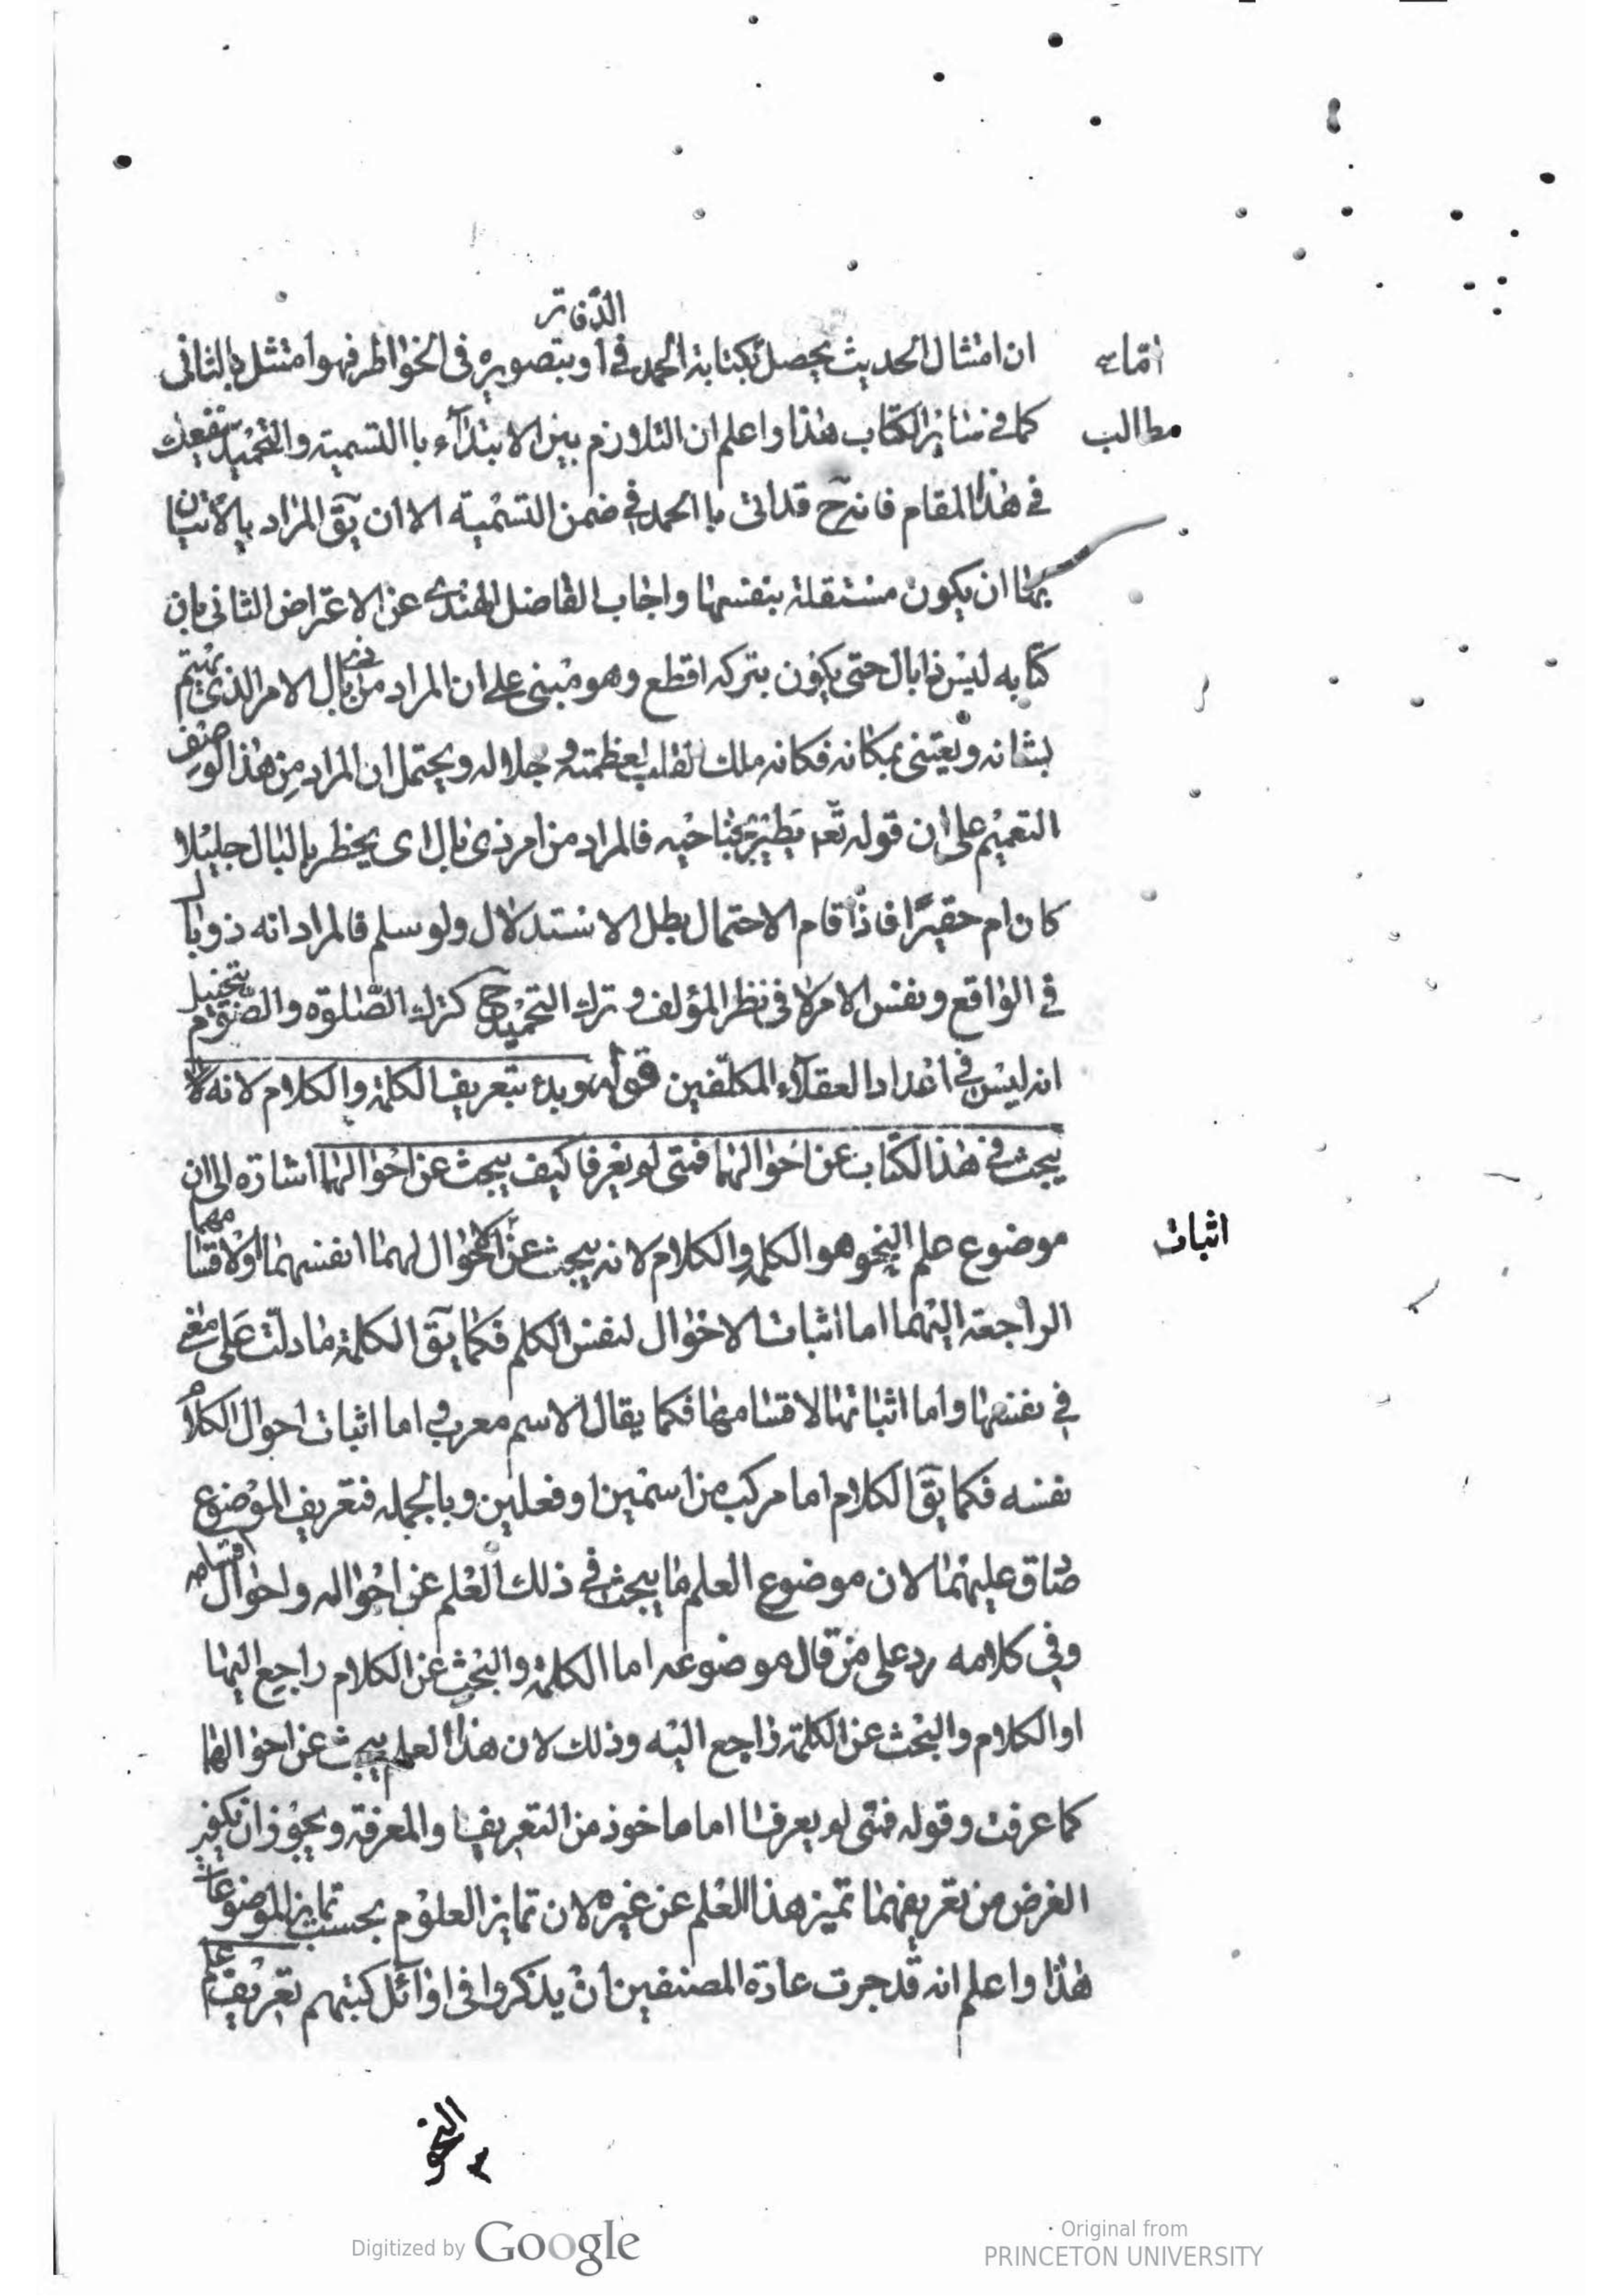 الدفاتر
ان امتثال الحديث يحصل بكتابة الحمد في او بتصويره فى الخواطر فهو امتثل بالثانى
اما
كما في سائر الكتاب هذا واعلم ان التلازم بين الابتدآء با التسمية والتحميد
مطالب
في هذا المقام فانه ح قد اتى با الحمد في ضمن التسمية الا ان يق المراد بالاتيان
بها ان يكون مستقلة بنفسها واجاب الفاضل الهندى عن الاعتراض الثانى بان
كتابه ليس ذا بال حتى يكون بتركه اقطع وهو مبنى على ان المراد من ذى بال الامر الذى يهتم
بشانه ويعتنى بمكانه فكانه ملك القلب لعظمته و جلاله ويحتمل ان المراد من هذا الوصف
التعميم على ان قوله تعه يطير بجناحيه فالمراد من امر ذى بال اى يخطر بالبال جليلا
كان ام حقيرًا فاذا قام الاحتمال بطل الاستدلال ولو سلم فالمراد انه ذو بال
في الواقع ونفس الامر لا فى نظر المؤلف و ترك التحميد ح كترك الصلوة والصوم بتخييل
انه ليس في اعداد العقلآء المكلفين قوله وبدء بتعريف الكلمة والكلام لانه
يبحث في هذا الكتاب عن احوالهما فمتى لم يعرفا كيف يبحث عن احوالهما اشارة الى ان
موضوع علم النحو هو الكلم والكلام لانه يبحث عن الاحوال لهما انفسهما او لاقسامهما
اثبات
الراجعة اليهما اما اثبات الاحوال لنفس الكلم فكما يق الكلمة ما دلت على معنى
في نفسها واما اثباتها لاقسامها فكما يقال الاسم معرب و اما اثبات احوال الكلام
نفسه فكما يق الكلام اما مركب من اسمين او فعلين وبالجمله فتعريف الموضوع
صاق عليهما لان موضوع العلم ما يبحث في ذلك العلم عن احواله واحوال اقسامه
وفى كلامه رد على من قال موضوعه اما الكلمة والبحث عن الكلام راجع اليها
او الكلام والبحث عن الكلمة راجع اليه وذلك لان هذا العلم يبحث عن احوالهما
كما عرفت وقوله فمتى لم يعرفا اما ماخوذ من التعريف او المعرفة ويجوز ان يكون
الغرض من تعريفهما تميز هذا العلم عن غيره لان تمايز العلوم بحسب تمايز الموضوعات
هذا واعلم انه قد جرت عادة المصنفين ان يذكروا فى اوائل كتبهم تعريف
النحو
Digitized by Google
Original from
PRINCETON UNIVERSITY